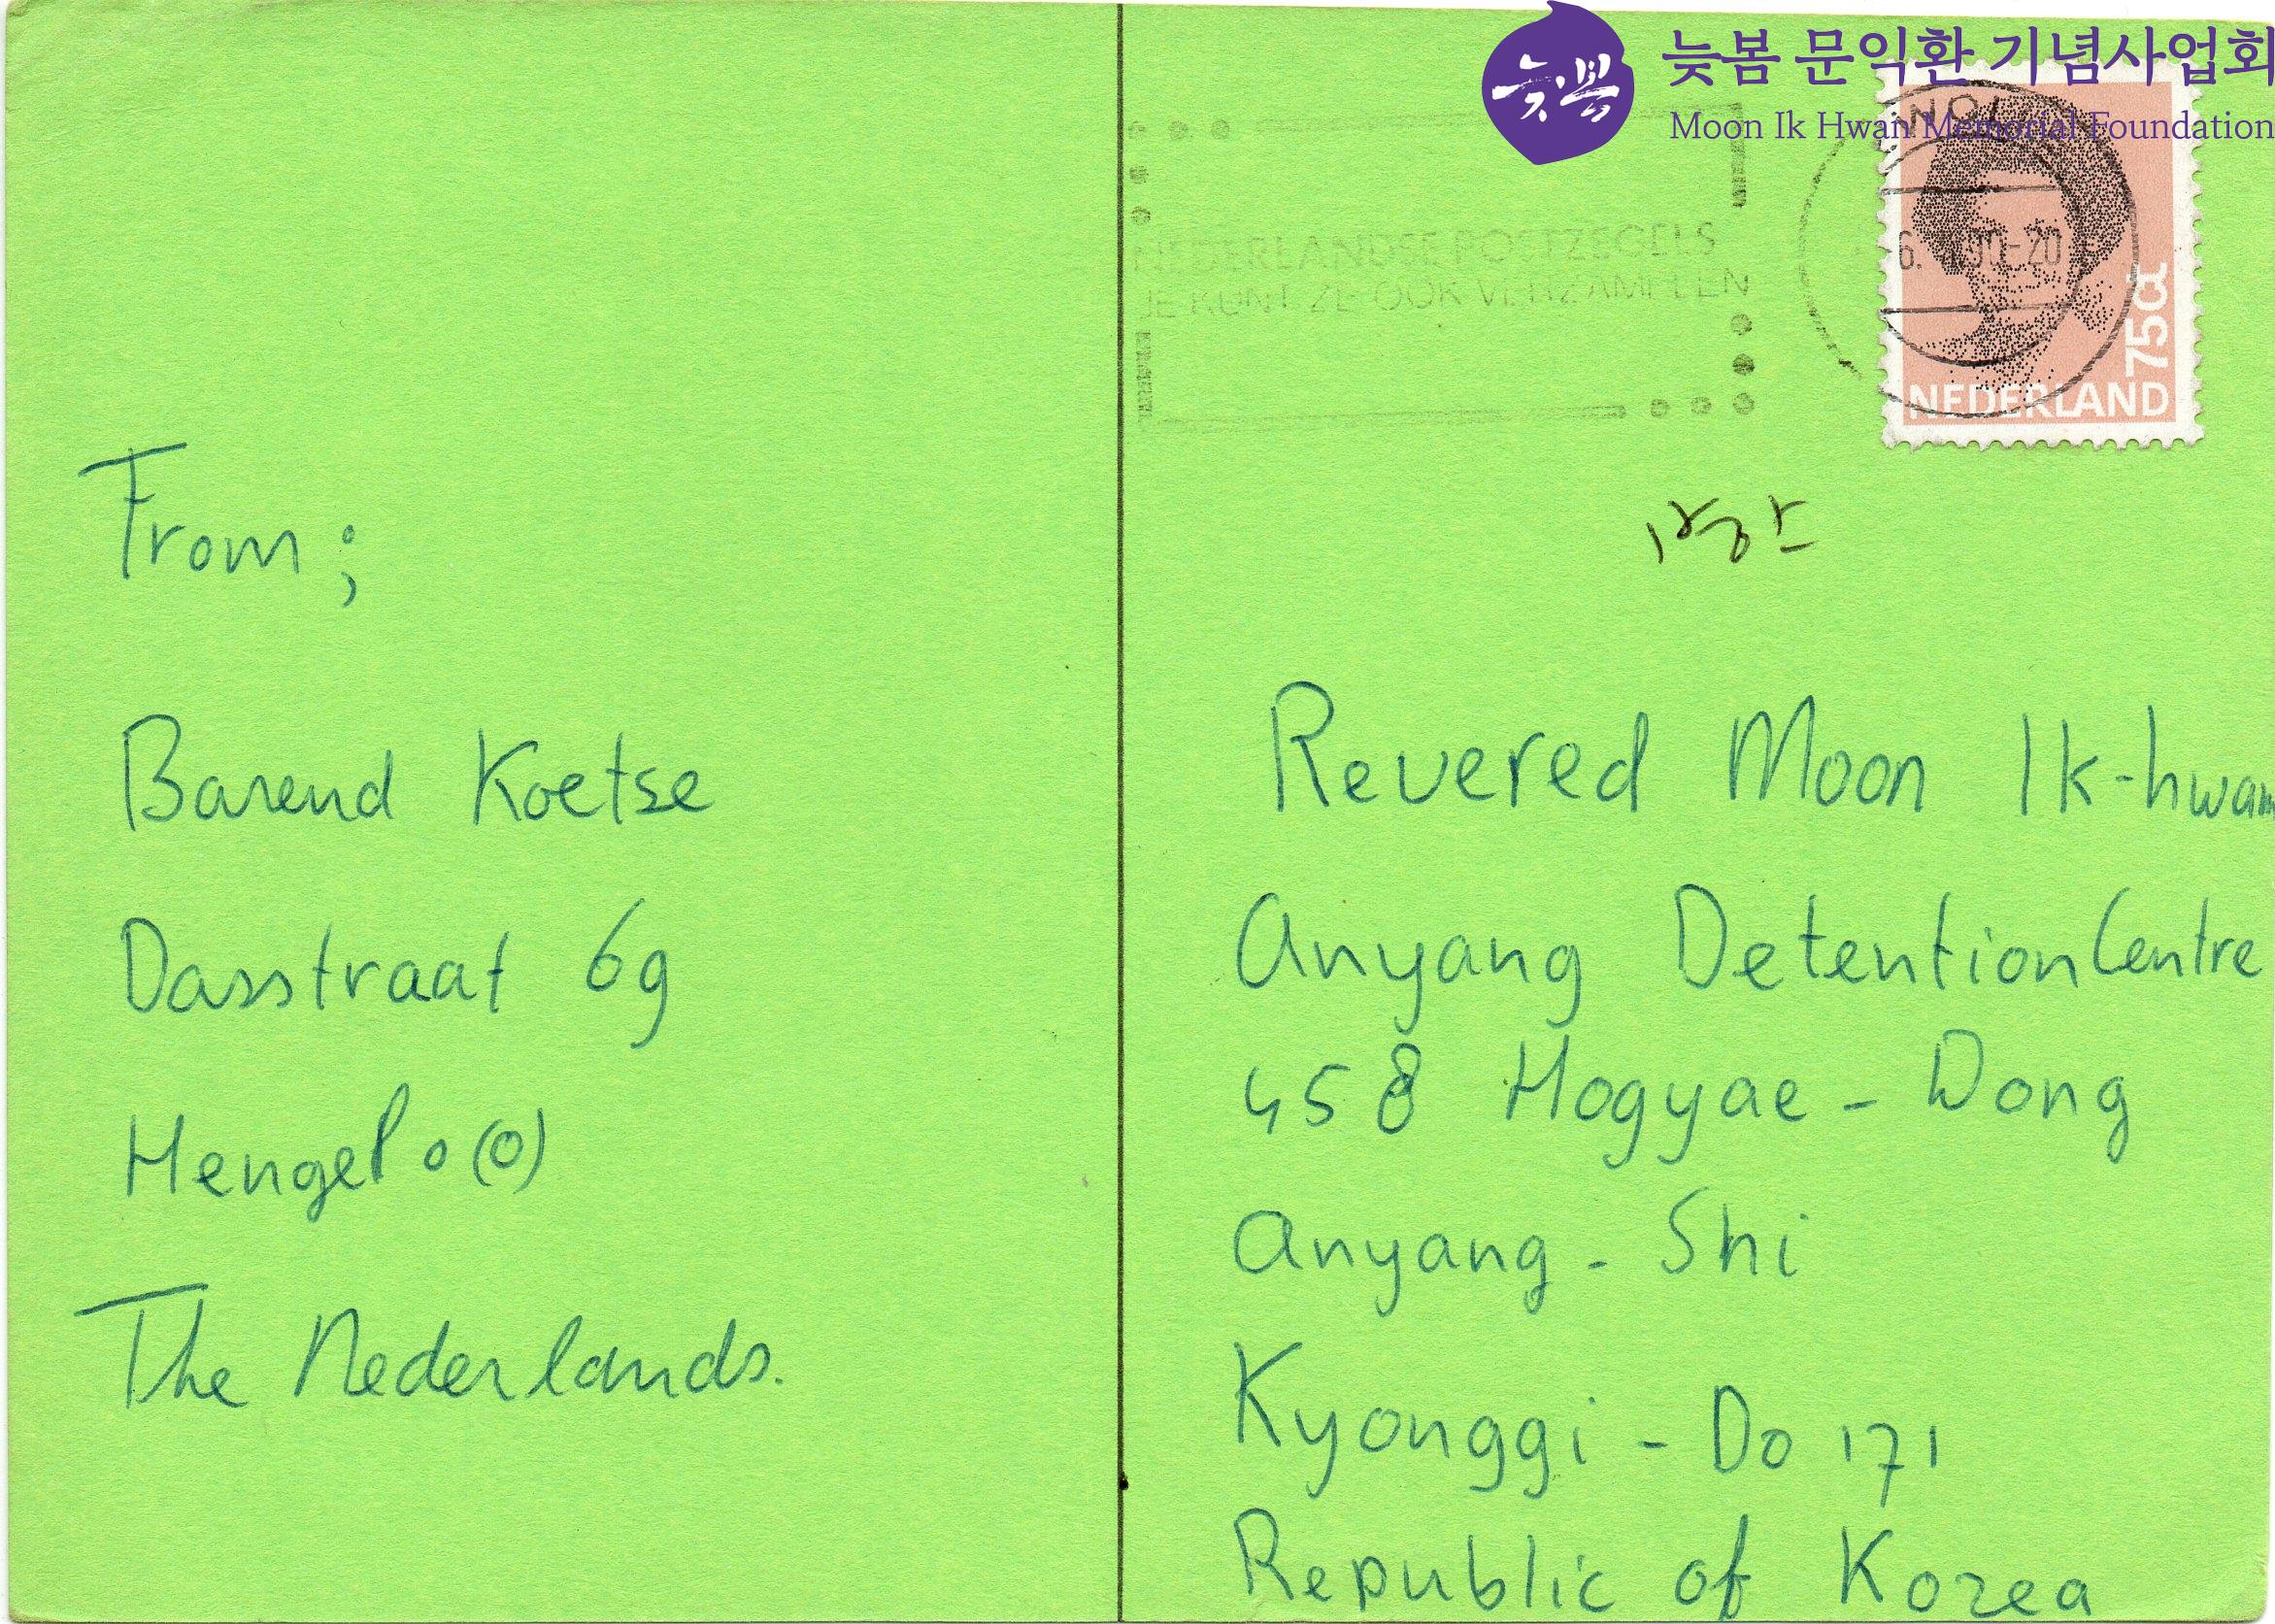 늦봄 문익환 기념사업회
Moon Ik Hwan Memorial Foundation
늦봄
NEDERLANDSE POSTZEGELS
JE KUNT ZE OOK VERZAMELEN
75c
NEDERLAND
From;
Barend Koetse
Dasstraat 6g
Hengelo (O)
The Nederlands.
Revered Moon Ik-hwan
Anyang Detention Centre
458 Hogyae - Dong
Anyang - Shi
Kyonggi - Do 171
Republic of Korea